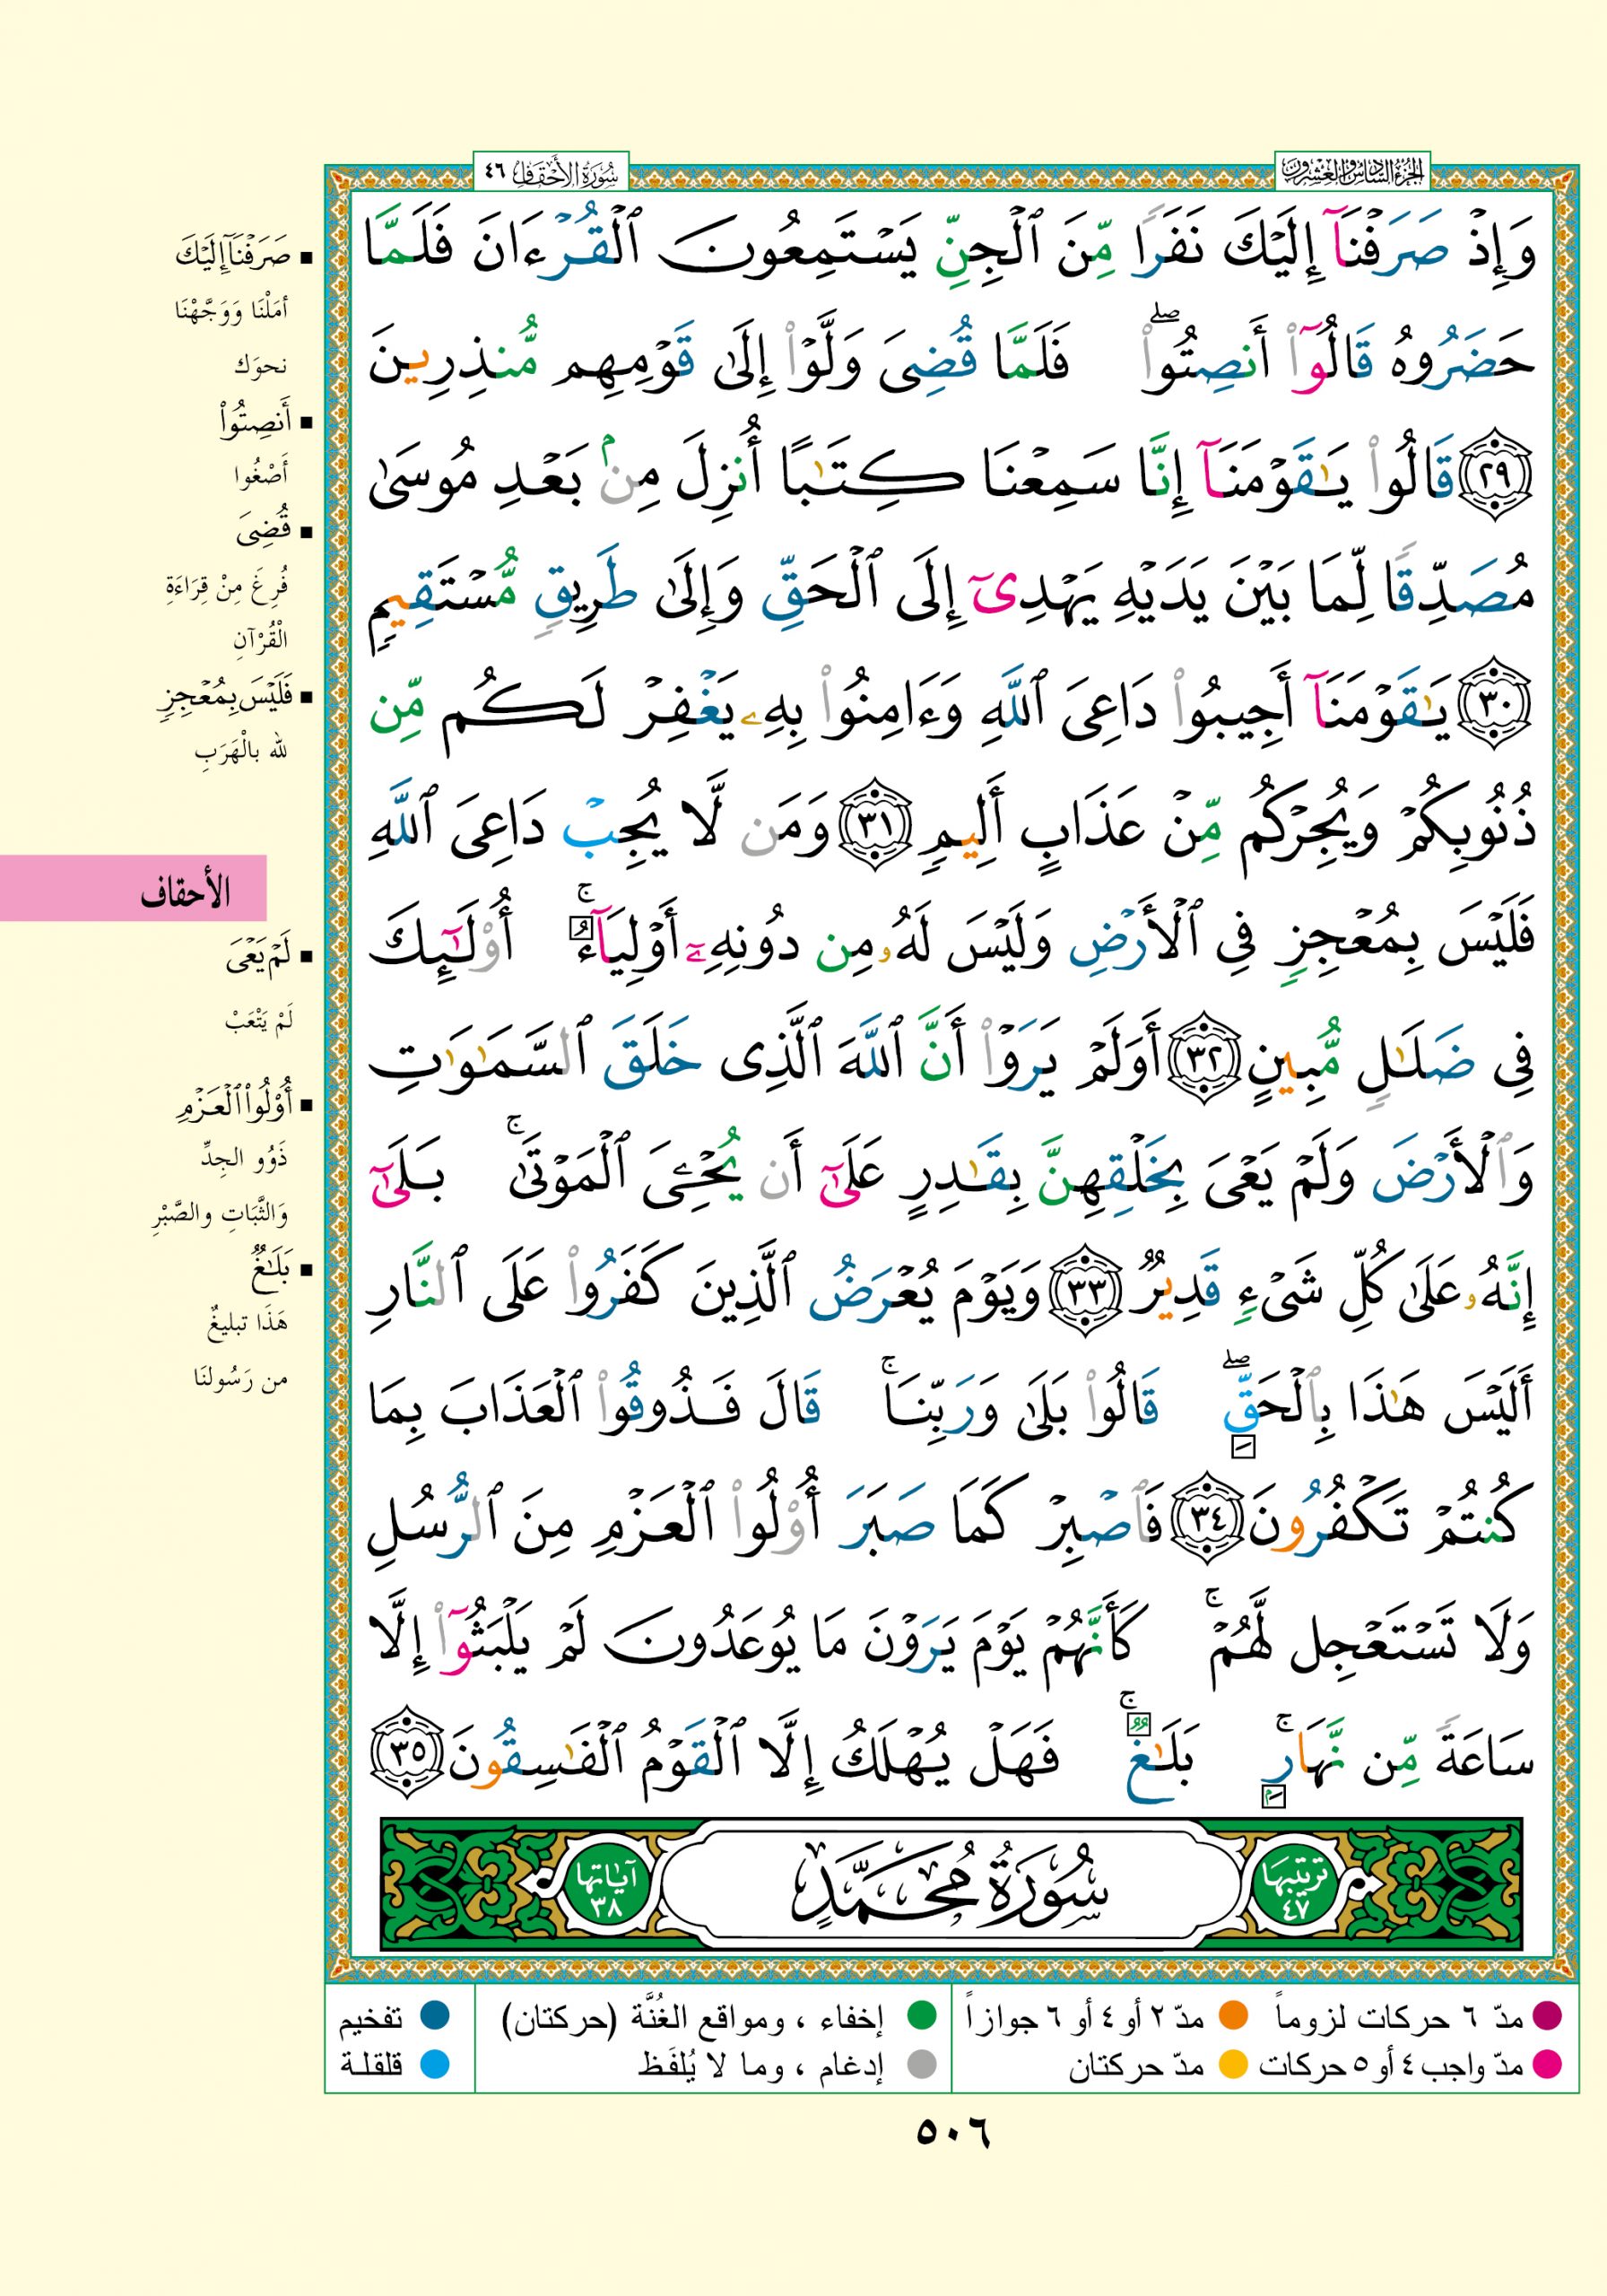 الجزء السادس والعشرون
سورة الأحقاف ٤٦
وَإِذْ صَرَفْنَآ إِلَيْكَ نَفَرًا مِّنَ ٱلْجِنِّ يَسْتَمِعُونَ ٱلْقُرْءَانَ فَلَمَّا
حَضَرُوهُ قَالُوٓا۟ أَنصِتُوا۟ ۖ فَلَمَّا قُضِىَ وَلَّوْا۟ إِلَىٰ قَوْمِهِم مُّنذِرِينَ
﴿٢٩﴾ قَالُوا۟ يَـٰقَوْمَنَآ إِنَّا سَمِعْنَا كِتَـٰبًا أُنزِلَ مِنۢ بَعْدِ مُوسَىٰ
مُصَدِّقًا لِّمَا بَيْنَ يَدَيْهِ يَهْدِىٓ إِلَى ٱلْحَقِّ وَإِلَىٰ طَرِيقٍ مُّسْتَقِيمٍ
﴿٣٠﴾ يَـٰقَوْمَنَآ أَجِيبُوا۟ دَاعِىَ ٱللَّهِ وَءَامِنُوا۟ بِهِۦ يَغْفِرْ لَكُم مِّن
ذُنُوبِكُمْ وَيُجِرْكُم مِّنْ عَذَابٍ أَلِيمٍ ﴿٣١﴾ وَمَن لَّا يُجِبْ دَاعِىَ ٱللَّهِ
فَلَيْسَ بِمُعْجِزٍ فِى ٱلْأَرْضِ وَلَيْسَ لَهُۥ مِن دُونِهِۦٓ أَوْلِيَآءُ ۚ أُو۟لَـٰٓئِكَ
فِى ضَلَـٰلٍ مُّبِينٍ ﴿٣٢﴾ أَوَلَمْ يَرَوْا۟ أَنَّ ٱللَّهَ ٱلَّذِى خَلَقَ ٱلسَّمَـٰوَٰتِ
وَٱلْأَرْضَ وَلَمْ يَعْىَ بِخَلْقِهِنَّ بِقَـٰدِرٍ عَلَىٰٓ أَن يُحْـِۧىَ ٱلْمَوْتَىٰ ۚ بَلَىٰٓ
إِنَّهُۥ عَلَىٰ كُلِّ شَىْءٍ قَدِيرٌ ﴿٣٣﴾ وَيَوْمَ يُعْرَضُ ٱلَّذِينَ كَفَرُوا۟ عَلَى ٱلنَّارِ
أَلَيْسَ هَـٰذَا بِٱلْحَقِّ ۖ قَالُوا۟ بَلَىٰ وَرَبِّنَا ۚ قَالَ فَذُوقُوا۟ ٱلْعَذَابَ بِمَا
كُنتُمْ تَكْفُرُونَ ﴿٣٤﴾ فَٱصْبِرْ كَمَا صَبَرَ أُو۟لُوا۟ ٱلْعَزْمِ مِنَ ٱلرُّسُلِ
وَلَا تَسْتَعْجِل لَّهُمْ ۚ كَأَنَّهُمْ يَوْمَ يَرَوْنَ مَا يُوعَدُونَ لَمْ يَلْبَثُوٓا۟ إِلَّا
سَاعَةً مِّن نَّهَارٍۭ ۚ بَلَـٰغٌ ۚ فَهَلْ يُهْلَكُ إِلَّا ٱلْقَوْمُ ٱلْفَـٰسِقُونَ ﴿٣٥﴾
ترتيبها ٤٧
سُورَةُ مُحَمَّدٍ
آياتها ٣٨
■ صَرَفْنَآ إِلَيْكَ
أمَلْنَا وَوَجَّهْنَا
نحوَك
■ أَنصِتُوا۟
أَصْغُوا
■ قُضِىَ
فُرِغَ مِنْ قِرَاءَةِ
الْقُرْآنِ
■ فَلَيْسَ بِمُعْجِزٍ
لله بالْهَرَبِ
الأحقاف
■ لَمْ يَعْىَ
لَمْ يَتْعَبْ
■ أُو۟لُوا۟ ٱلْعَزْمِ
ذَوُو الجِدِّ
وَالثَّبَاتِ والصَّبْرِ
■ بَلَـٰغٌ
هَذَا تبليغٌ
من رَسُولنَا
مدّ ٦ حركات لزوماً
مدّ ٢ أو ٤ أو ٦ جوازاً
إخفاء ، ومواقع الغُنَّة (حركتان)
تفخيم
مدّ واجب ٤ أو ٥ حركات
مدّ حركتان
إدغام ، وما لا يُلفَظ
قلقلة
٥٠٦